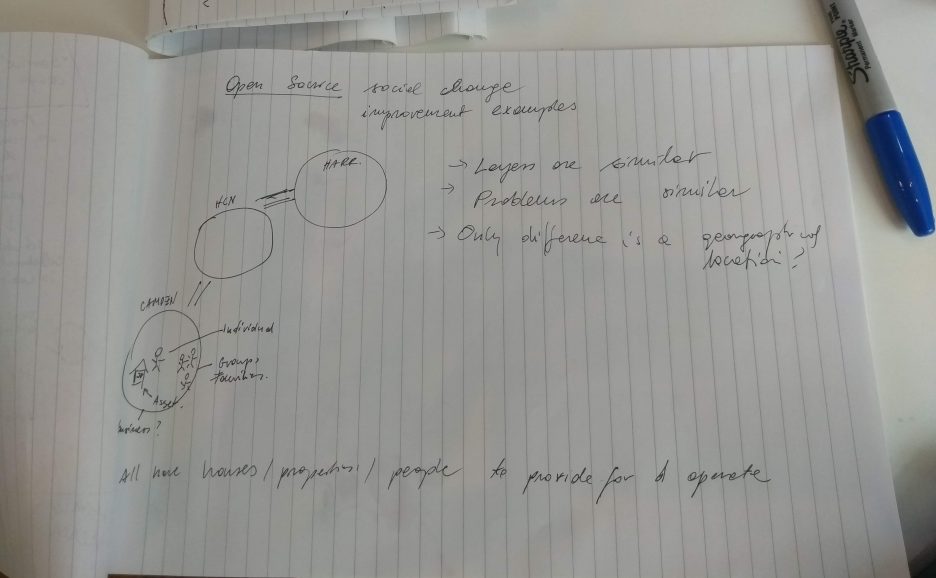 Open Source social change
improvement examples
HARR.
HCN
CAMDEN
→ Layers are similar
→ Problems are similar
→ Only difference is a geographical
location?
Individual
Groups
Families.
Asset.
business?
All have houses / properties / people to provide for & operate
Sharpie